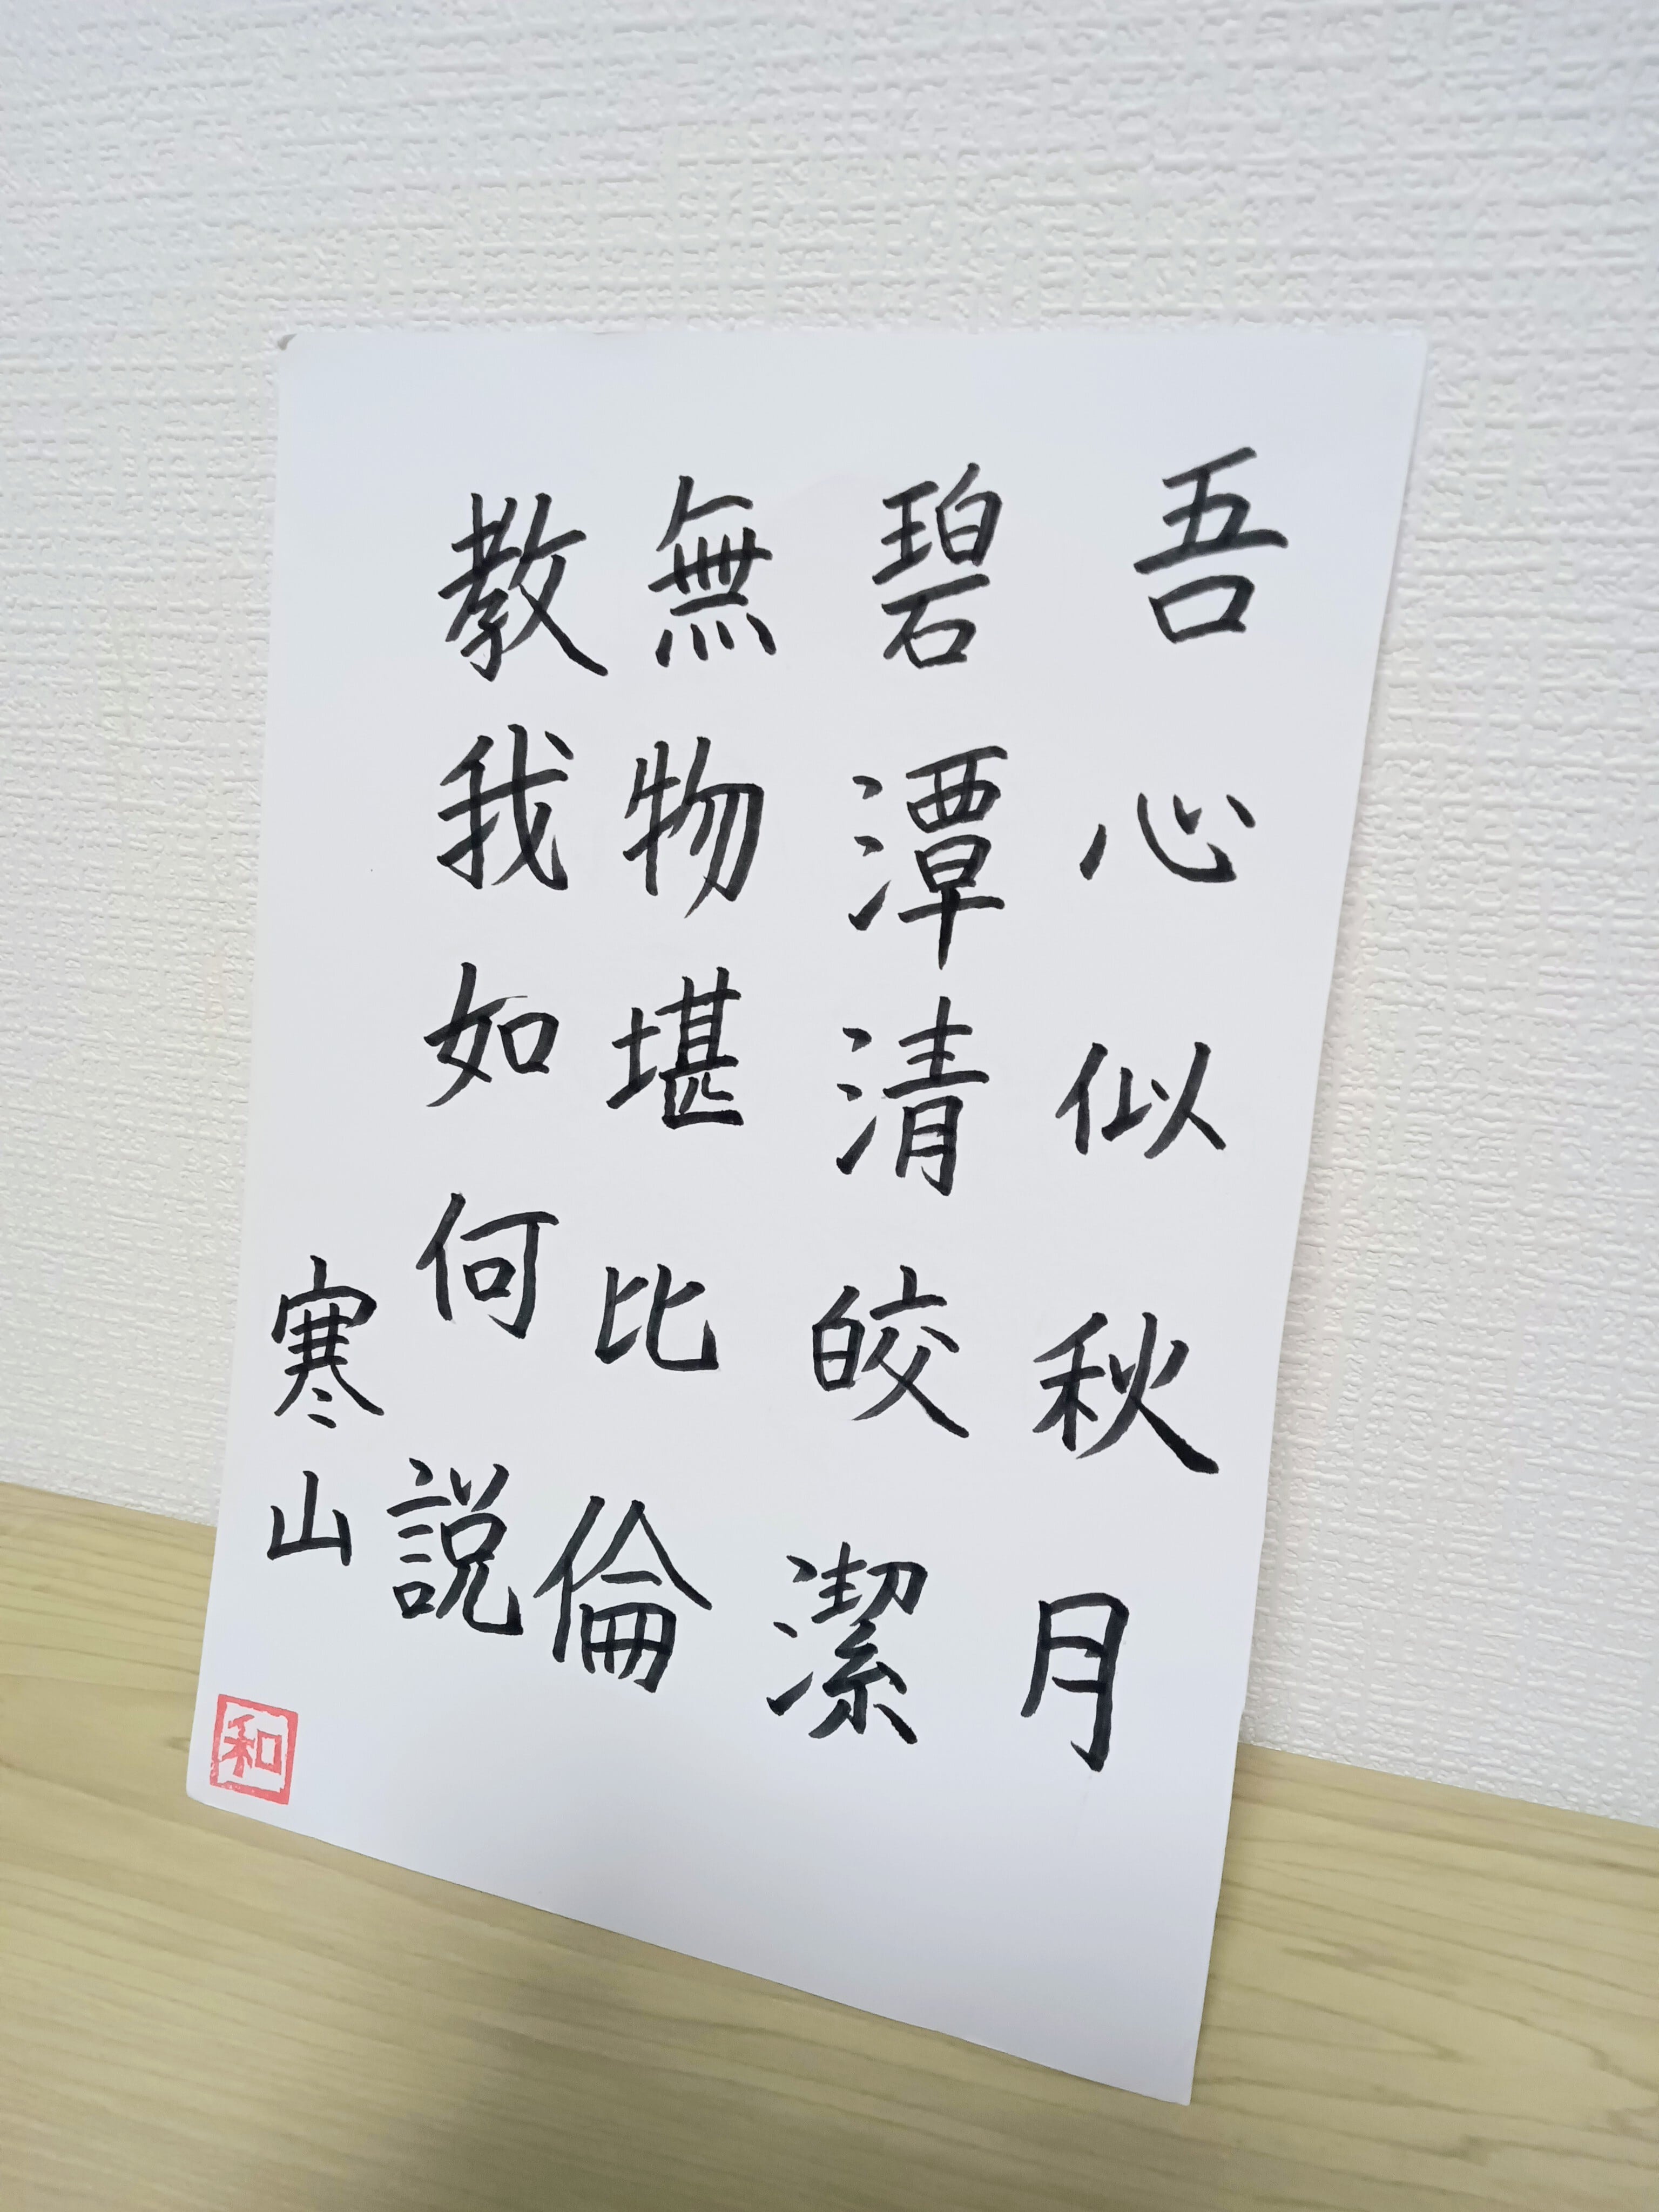 吾心似秋月
碧潭清皎潔
無物堪比倫
教我如何説
寒山
和